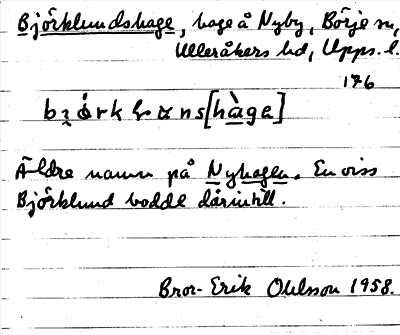 Björklundshage, hage å Nyby, Börje sn,
Ulleråkers hd, Upps. l.
176
[hàga]
Äldre namn på Nyhagen. En viss
Björklund bodde därintill.
Bror-Erik Ohlsson 1958.